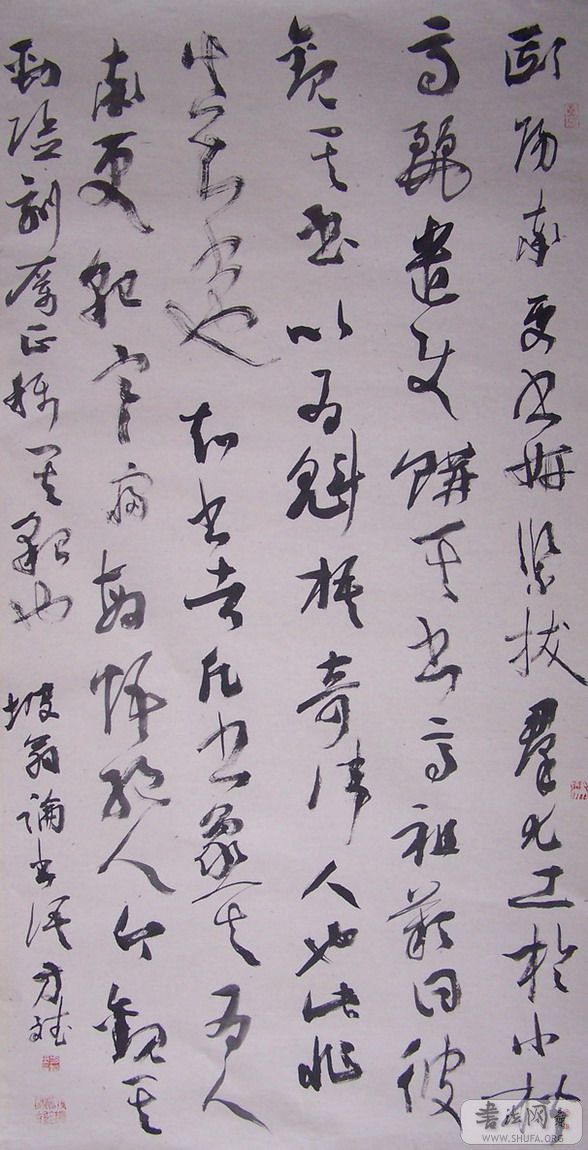 歐陽率更書妍緊拔群尤工於小楷
高麗遣使購其書高祖歎曰彼
觀其書以為魁梧奇偉人也此非
真知書也知書者凡書象其為人
率更貌寒寢敏悟絕人今觀其
勁險刻厲正稱其貌也 坡翁論書語
书法网
WWW.SHUFA.ORG